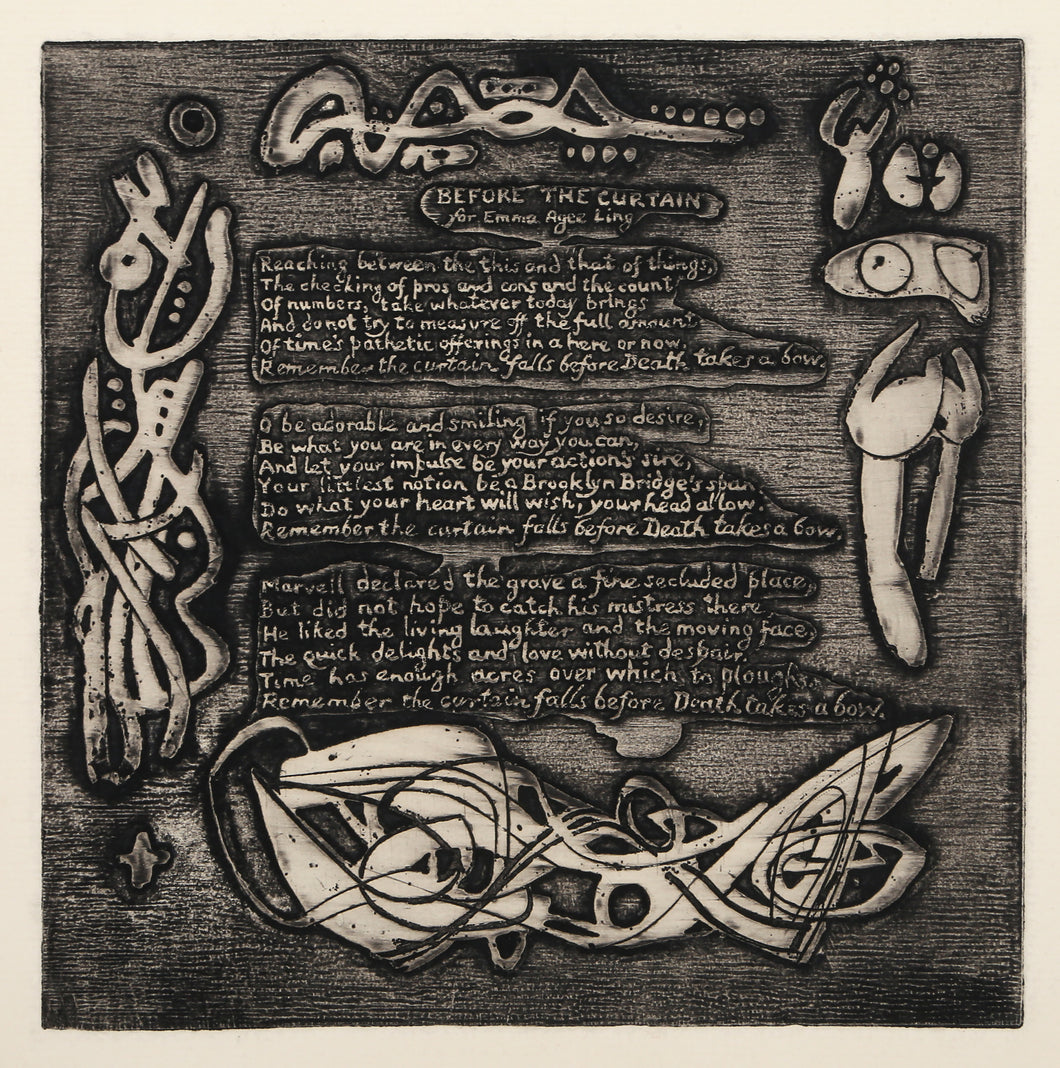 BEFORE THE CURTAIN
for Emma Agee Ling
Reaching between the this and that of things,
The checking of pros and cons and the count
Of numbers, take whatever today brings
And do not try to measure off the full amount
Of time's pathetic offerings in a here or now.
Remember the curtain falls before Death takes a bow.
O be adorable and smiling if you so desire,
Be what you are in every way you can,
And let your impulse be your actions' sire,
Your littlest notion be a Brooklyn Bridge's span.
Do what your heart will wish, your head allow.
Remember the curtain falls before Death takes a bow.
Marvell declared the grave a fine secluded place,
But did not hope to catch his mistress there.
He liked the living laughter and the moving face,
The quick delights and love without despair.
Time has enough acres over which to plough.
Remember the curtain falls before Death takes a bow.